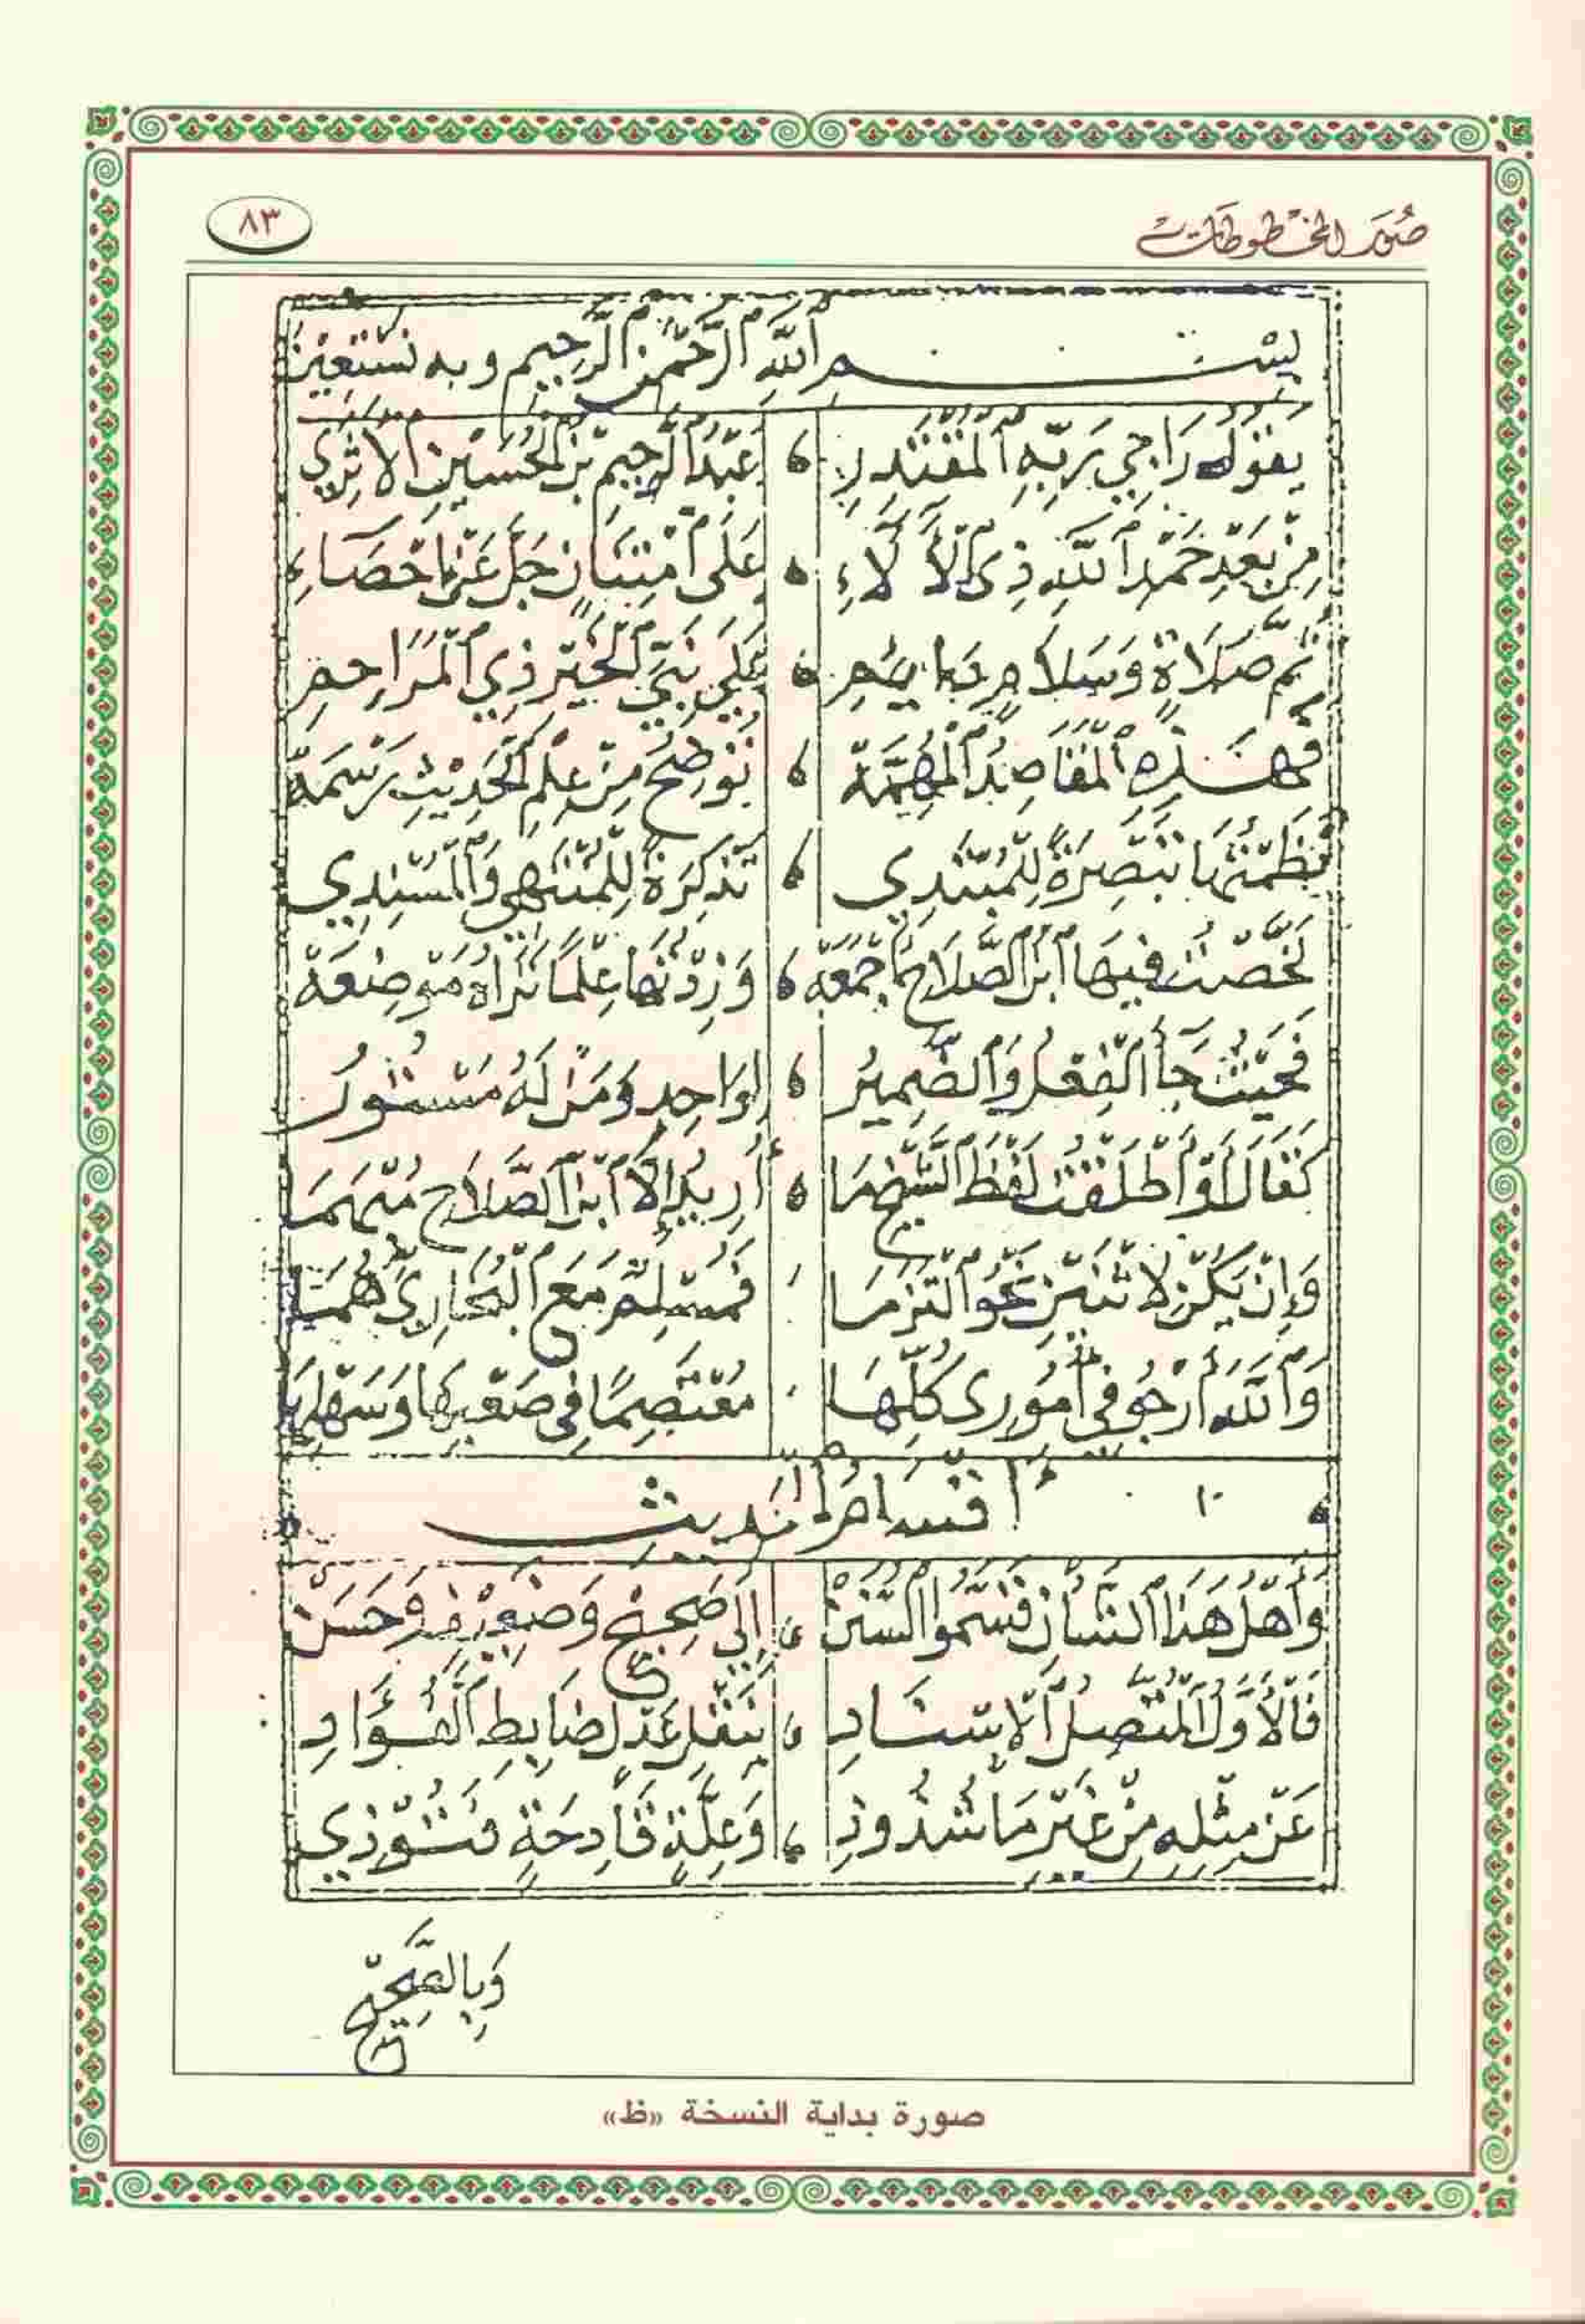 صُوَر المخطوطات
٨٣
بِسْمِ ٱللَّهِ ٱلرَّحْمَٰنِ ٱلرَّحِيمِ وبه نَسْتَعِين
يَقُولُ رَاجِي رَبِّهِ ٱلْمُقْتَدِرِ عَبْدُ ٱلرَّحِيمِ بْنُ ٱلْحُسَيْنِ ٱلْأَثَرِي
مِنْ بَعْدِ حَمْدِ ٱللَّهِ ذِي ٱلْآلَاءِ عَلَى ٱمْتِنَانٍ جَلَّ عَنْ إِحْصَاءِ
ثُمَّ صَلَاةٍ وَسَلَامٍ دَايِمِ عَلَى نَبِيِّ ٱلْخَيْرِ ذِي ٱلْمَرَاحِمِ
فَهَذِهِ ٱلْمَقَاصِدُ ٱلْمُهِمَّهْ تُوَضِّحُ مِنْ عِلْمِ ٱلْحَدِيثِ رَسْمَهْ
نَظَمْتُهَا تَبْصِرَةً لِلْمُبْتَدِي تَذْكِرَةً لِلْمُنْتَهِي وَٱلْمُسْنِدِي
لَخَّصْتُ فِيهَا ٱبْنَ ٱلصَّلَاحِ أَجْمَعَهْ وَزِدْتُهَا عِلْمًا تَرَاهُ مَوْضِعَهْ
فَحَيْثُ جَأَ ٱلْفِعْلُ وَٱلضَّمِيرُ لِوَاحِدٍ وَمَنْ لَهُ مَسْتُورُ
كَقَالَ أَوْ أَطْلَقْتُ لَفْظَ ٱلشَّيْخِ مَا أُرِيدُ إِلَّا ٱبْنَ ٱلصَّلَاحِ مُبْهَمَا
وَإِنْ يَكُنْ لِاثْنَيْنِ نَحْوُ ٱلْتَزَمَا فَمُسْلِمٌ مَعَ ٱلْبُخَارِيِّ هُمَا
وَٱللَّهَ أَرْجُو فِي أُمُورِي كُلِّهَا مُعْتَصِمًا فِي صَعْبِهَا وَسَهْلِهَا
١٠ أَقْسَامُ ٱلْحَدِيث
وَأَهْلُ هَذَا ٱلشَّأْنِ قَسَّمُوا ٱلسُّنَنْ إِلَى صَحِيحٍ وَضَعِيفٍ وَحَسَنْ
فَٱلْأَوَّلُ ٱلْمُتَّصِلُ ٱلْإِسْنَادِ بِنَقْلِ عَدْلٍ ضَابِطِ ٱلْفُؤَادِ
عَنْ مِثْلِهِ مِنْ غَيْرِ مَا شُذُوذِ وَعِلَّةٍ قَادِحَةٍ فَتُوذِي
وَبِالصَّحِيحِ
صورة بداية النسخة «ظ»